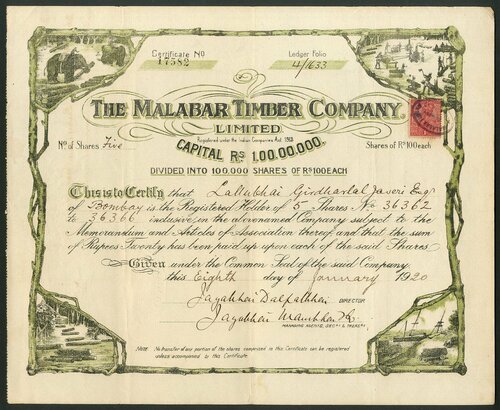 Certificate No 17582
Ledger Folio 4/1633
THE MALABAR TIMBER COMPANY,
LIMITED.
Registered under the Indian Companies Act 1913
No of Shares Five
CAPITAL RS 1,00,00,000.
Shares of Rs 100 each
DIVIDED INTO 100,000 SHARES OF RS 100 EACH
This is to Certify that Lallubhai Girdharlal Javeri Esqr
of Bombay is the Registered Holder of 5 Shares No 36362
to 36366 inclusive in the abovenamed Company subject to the
Memorandum and Articles of Association thereof, and that the sum
of Rupees Twenty has been paid up upon each of the said Shares
Given under the Common Seal of the said Company
this Eighth day of January 1920
DIRECTOR
MANAGING AGENTS, SECYS & TREASRS
Note. No transfer of any portion of the shares comprised in this Certificate can be registered
unless accompanied to this Certificate.